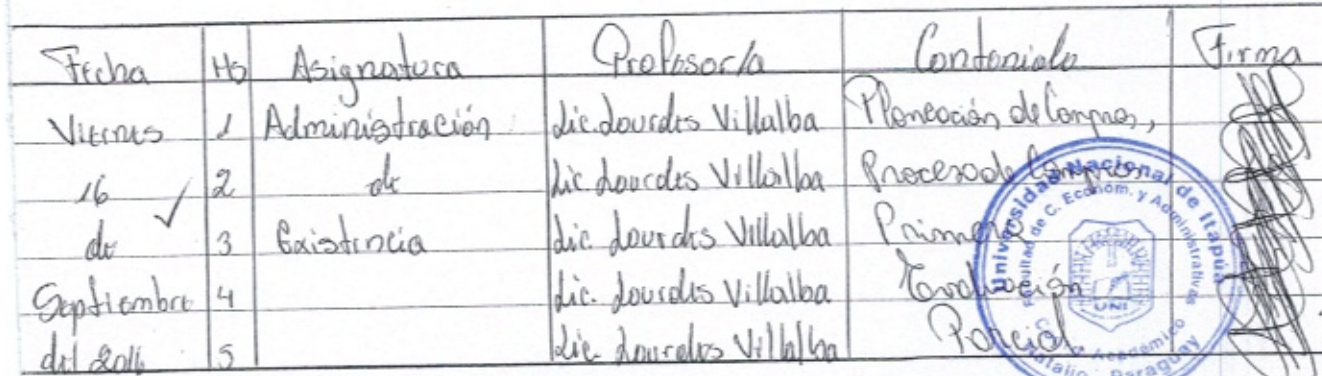 Fecha Hs Asignatura Profesor/a Contenido Firma
Viernes 1 Administración Lic. Lourdes Villalba Planeación de Compras,
16 2 de Lic. Lourdes Villalba Proceso de Compras
de 3 Existencia Lic. Lourdes Villalba Primera
Septiembre 4 Lic. Lourdes Villalba Evaluación
del 2016 5 Lic. Lourdes Villalba Parcial
Universidad Nacional de Itapúa
Facultad de C. Econom. y Administrativas
UNI
Académico
Natalio - Paraguay